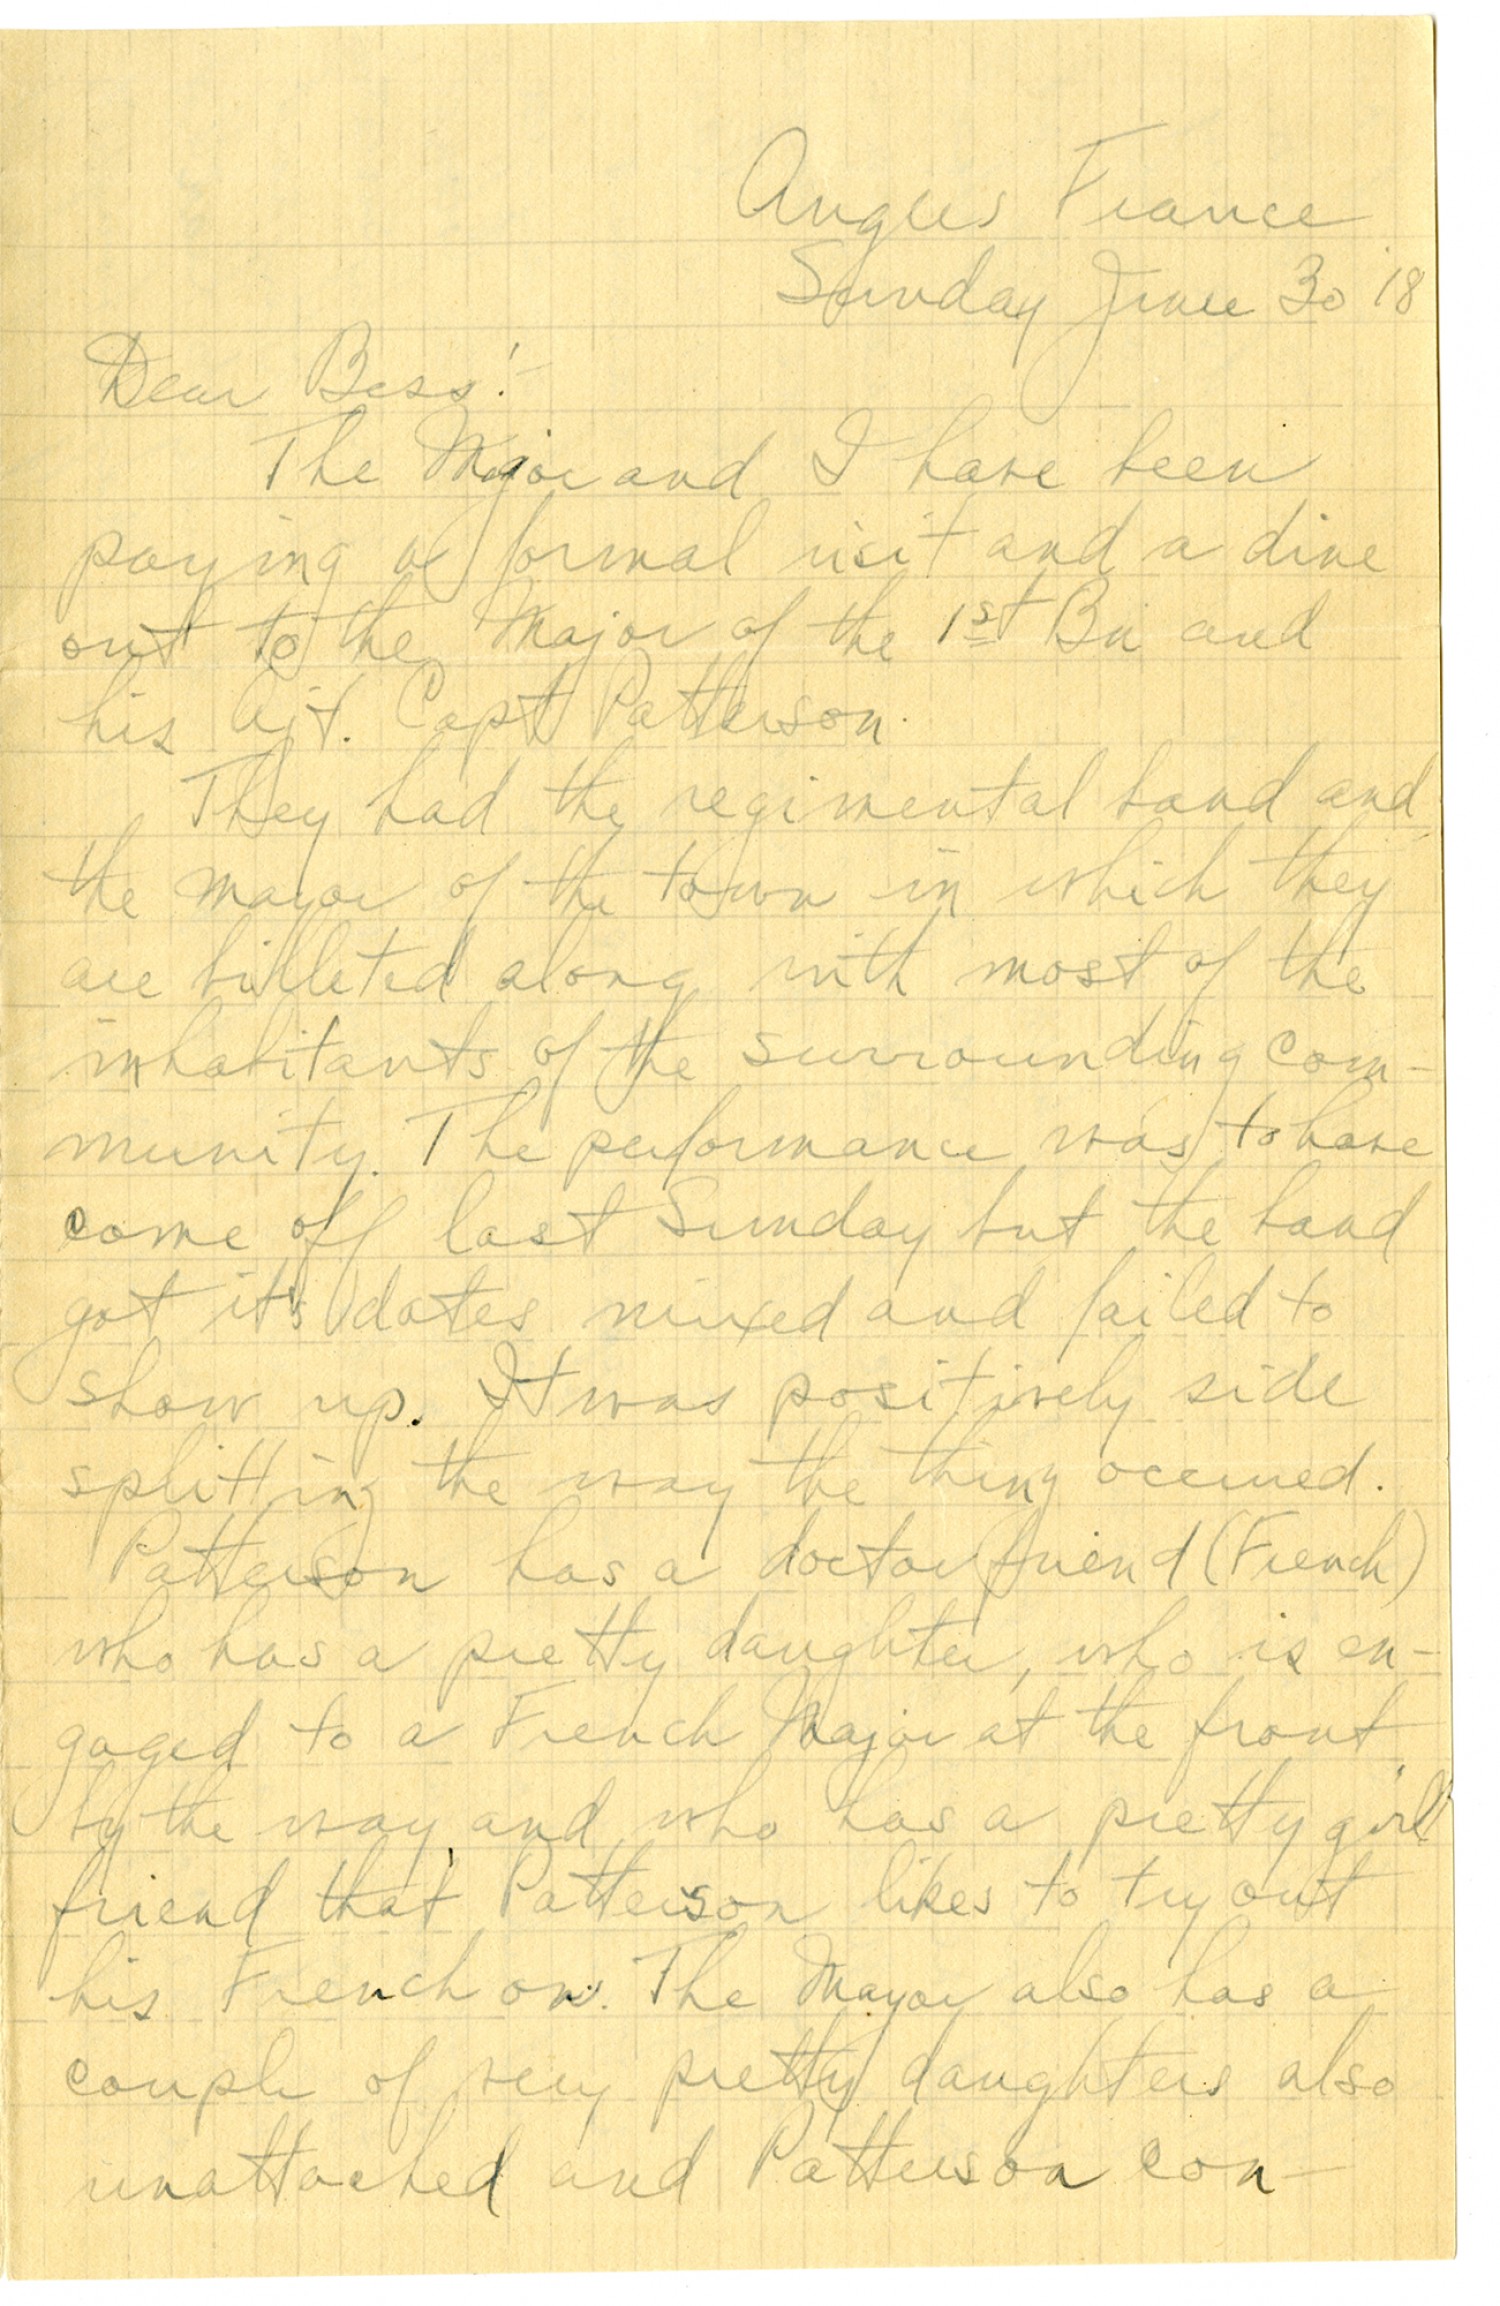 Angers France
Sunday June 30 '18
Dear Bess:-
The Major and I have been
paying a formal visit and a dine
out to the Major of the 1st Bn and
his Ajt. Capt Patterson.
They had the regimental band and
the mayor of the town in which they
are billeted along with most of the
inhabitants of the surrounding com-
munity. The performance was to have
come off last Sunday but the band
got it's dates mixed and failed to
show up. It was positively side
splitting the way the thing occurred.
Patterson has a doctor friend (French)
who has a pretty daughter, who is en-
gaged to a French Major at the front
by the way, and who has a pretty girl
friend that Patterson likes to try out
his French on. The Mayor also has a
couple of very pretty daughters also
unattached and Patterson con-